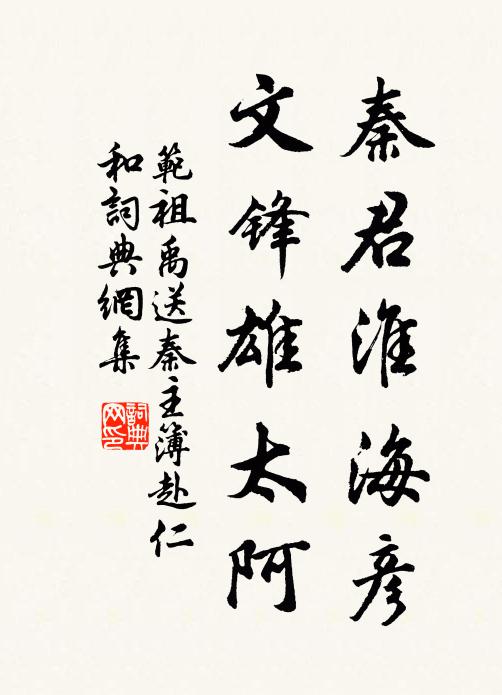 秦君淮海彥
文鋒雄太阿
範祖禹送秦主簿赴仁
和詞典網集
詞典网印